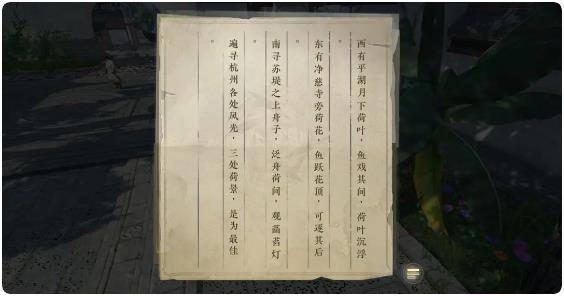 西有平湖月下荷叶，鱼戏其间，荷叶沉浮
东有净慈寺旁荷花，鱼跃花顶，可逐其后
南寻苏堤之上舟子，泛舟荷间，观菡萏灯
遍寻杭州各处风光，三处荷景，是为最佳